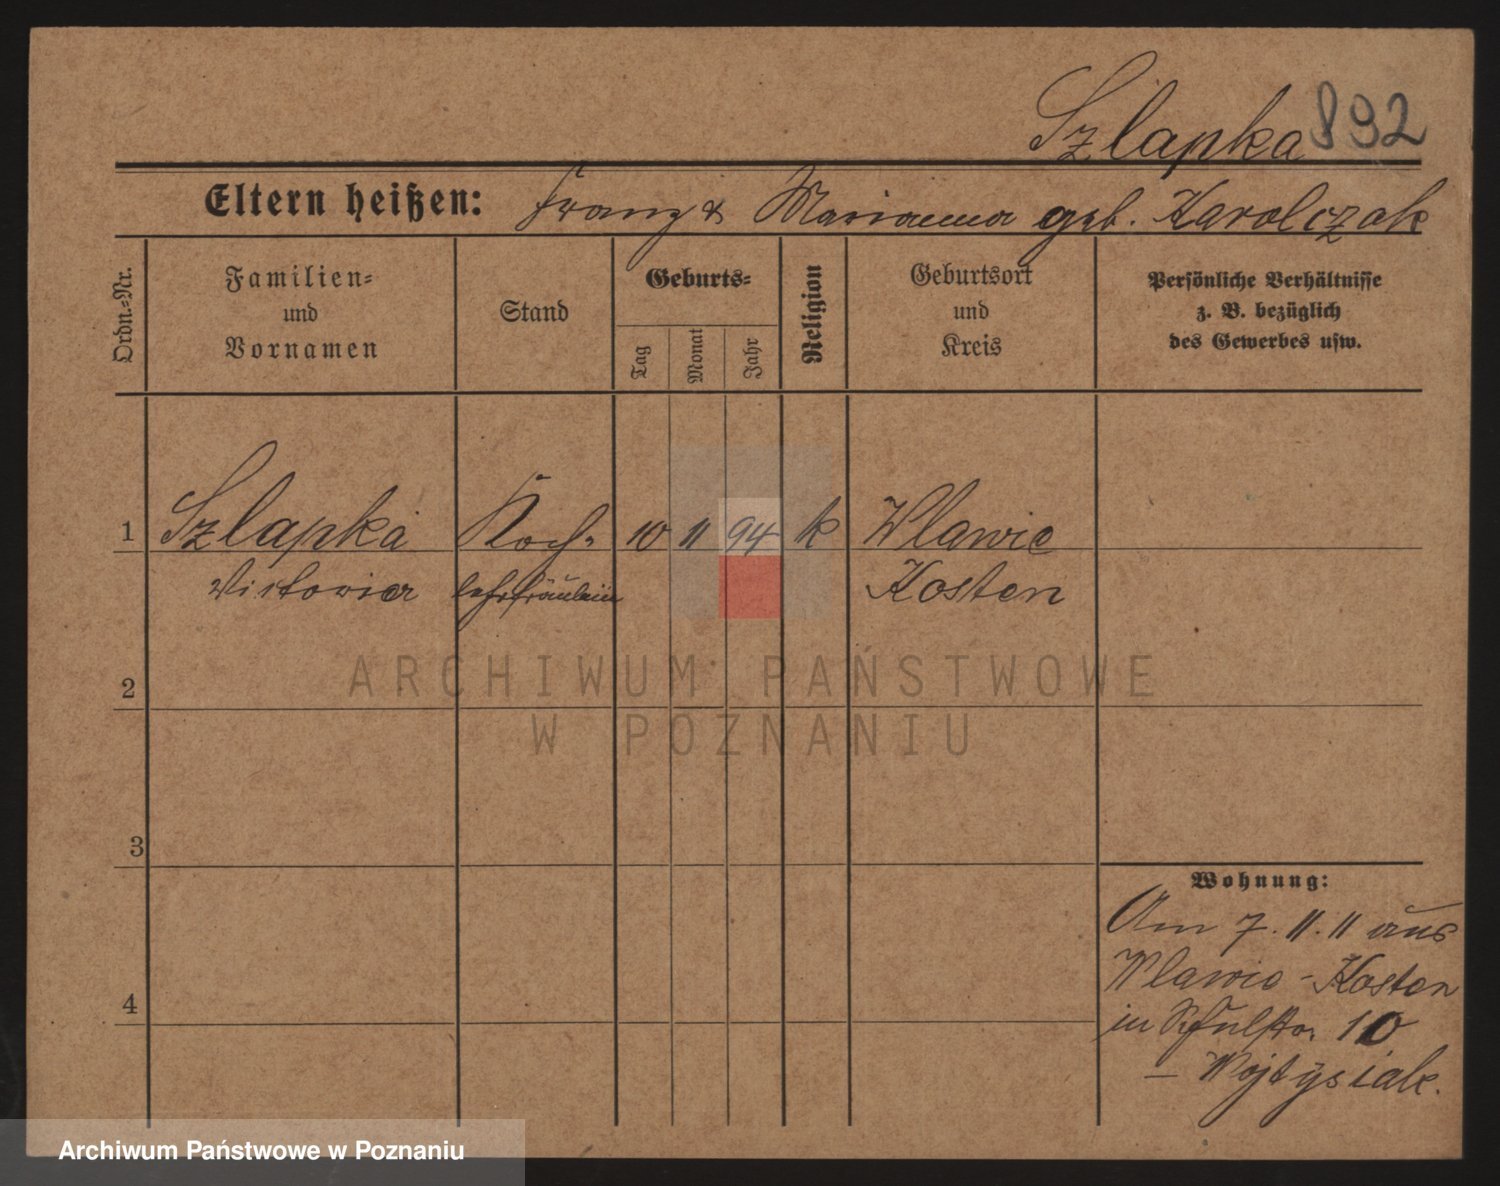 Szlapka 892
Eltern heißen: Franz & Marianna geb. Karolczak
Ordn.=Nr.
Familien=
und
Vornamen
Stand
Geburts=
Tag
Monat
Jahr
Religion
Geburtsort
und
Kreis
Persönliche Verhältnisse
z. B. bezüglich
des Gewerbes usw.
1 Szlapka Koch= 10 11 94 k Wlawie
Victoria lehrfräulein Kosten
2
3
4
Wohnung:
Am 7. 11. 11 aus
Wlawie - Kosten
in Schulstr. 10
– Wojtysiak.
ARCHIWUM PAŃSTWOWE
W POZNANIU
Archiwum Państwowe w Poznaniu